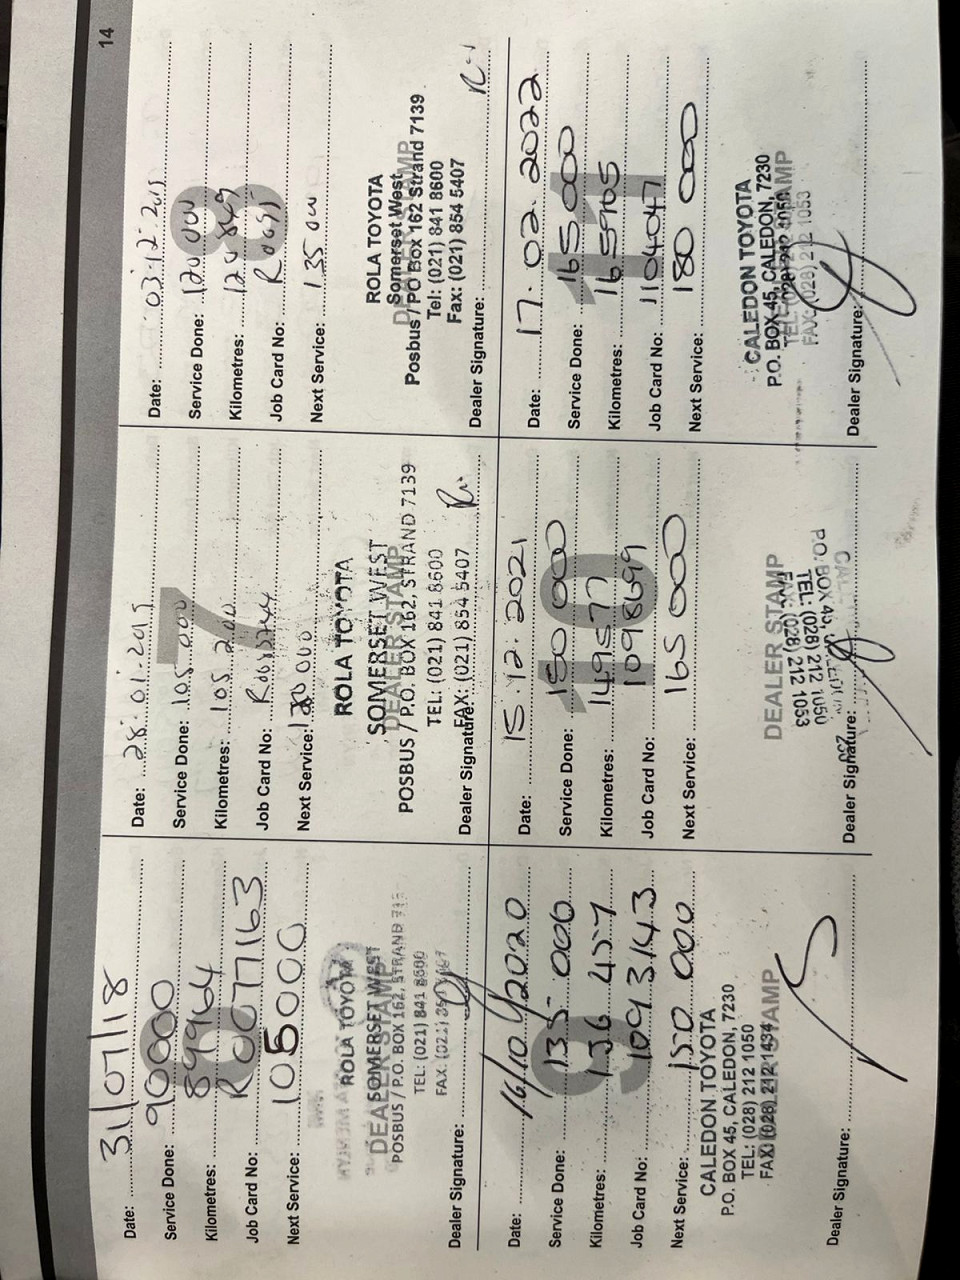 14
6
Date: 31/07/18
Service Done: 90000
Kilometres: 89964
Job Card No: R0077163
Next Service: 105000
ROLA TOYOTA
SOMERSET WEST
DEALER STAMP
POSBUS / P.O. BOX 162, STRAND 713
TEL: (021) 841 8600
FAX: (021)
Dealer Signature:
7
Date: 28.01.2019
Service Done: 105 000
Kilometres: 105 200
Job Card No:
Next Service: 120 000
ROLA TOYOTA
SOMERSET WEST
DEALER STAMP
POSBUS / P.O. BOX 162, STRAND 7139
TEL: (021) 841 8600
FAX: (021) 854 5407
Dealer Signature:
8
Date: 03.12.2019
Service Done: 120 000
Kilometres: 120 849
Job Card No:
Next Service: 135 000
ROLA TOYOTA
Somerset West
DEALER STAMP
Posbus / PO Box 162 Strand 7139
Tel: (021) 841 8600
Fax: (021) 854 5407
Dealer Signature:
9
Date: 16/10/2020
Service Done: 135 000
Kilometres: 136 457
Job Card No: 1093143
Next Service: 150 000
CALEDON TOYOTA
P.O. BOX 45, CALEDON, 7230
TEL: (028) 212 1050
DEALER STAMP
FAX: (028) 212 1434
Dealer Signature:
10
Date: 15.12.2021
Service Done: 150 000
Kilometres: 149577
Job Card No: 1098699
Next Service: 165 000
DEALER STAMP
P.O. BOX 45,
TEL: (028) 212 1050
FAX: (028) 212 1053
Dealer Signature:
11
Date: 17.02.2022
Service Done: 165 000
Kilometres: 165705
Job Card No: 1104047
Next Service: 180 000
CALEDON TOYOTA
P.O. BOX 45, CALEDON, 7230
DEALER STAMP
TEL: (028) 212 1050
FAX: (028) 212 1053
Dealer Signature: